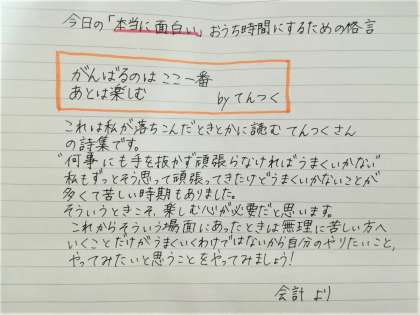 今日の「本当に面白い」おうち時間にするための格言
がんばるのは ここ一番
あとは楽しむ
by てんつく
これは私が落ちこんだときとかに読む てんつくさん
の詩集です。
"何事にも手を抜かず頑張らなければうまくいかない"
私もずっとそう思って頑張ってきたけどうまくいかないことが
多くて苦しい時期もありました。
そういうときこそ、楽しむ心が必要だと思います。
これからそういう場面にあったときは無理に苦しい方へ
いくことだけがうまくいくわけではないから自分のやりたいこと、
やってみたいと思うことをやってみましょう!
会計 より